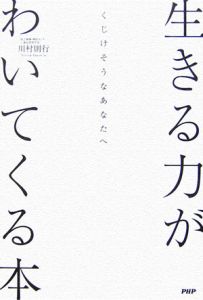 生きる力が
わいてくる本
くじけそうなあなたへ
川村則行
PHP